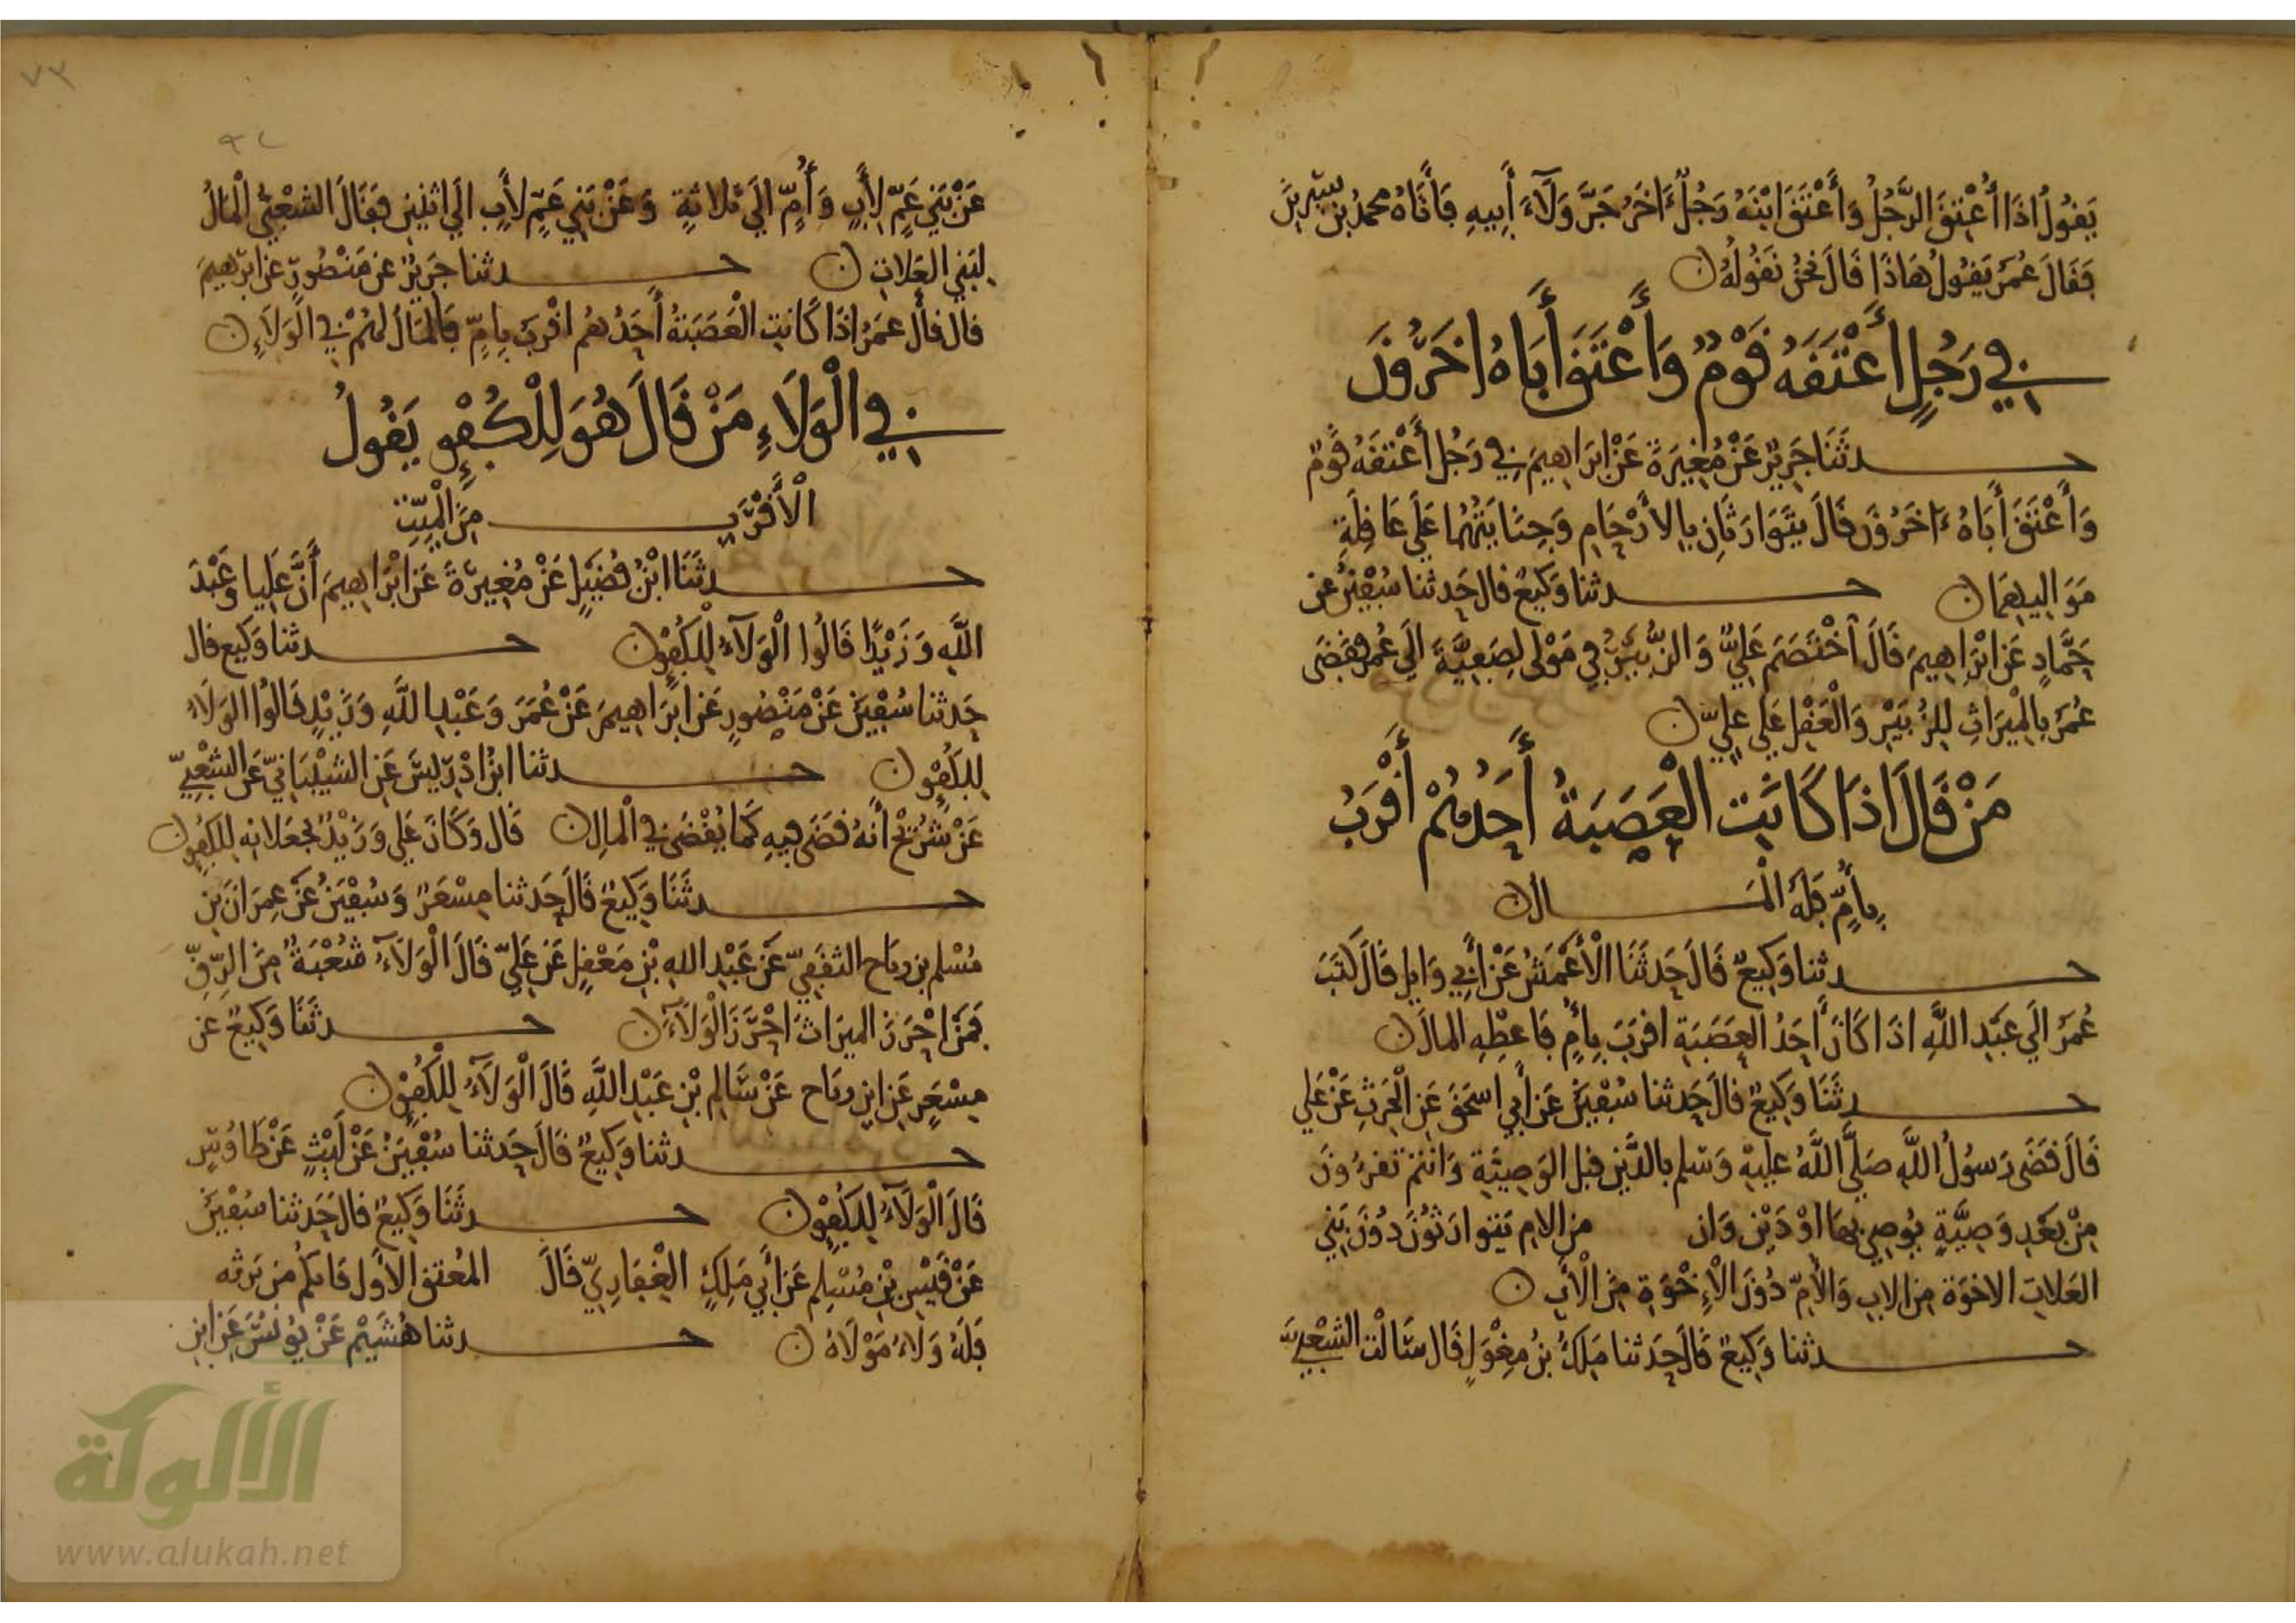 يَقُولُ اذَا أُعْتِقَ الرَّجُلُ وَأَعْتَقَ ابْنَهُ رَجُلٌ ءَاخَرُ جَرَّ وَلَآءَ أَبِيهِ فَأَتَاهُ محمدُ بن سِيرِينَ
فَقَالَ عُمَرُ يَقُولُ هَاذَا قَالَ نَحْنُ نَقُولُهُ ن
فِي رَجُلٍ أَعْتَقَهُ قَوْمٌ وَأَعْتَقَ أَبَاهُ اخَرُونَ
حدثَنَا جَرِيرٌ عَنْ مُغِيرَةَ عَنْ ابْرَاهِيمَ فِي رَجُلٍ أَعْتَقَهُ قَوْمٌ
وَأَعْتَقَ أَبَاهُ ءَاخَرُونَ قَالَ يَتَوَارَثَانِ بِالأَرْحَامِ وَجِنَايَتُهُمَا عَلَى عَاقِلَةِ
مَوَاليهِمَا ن حدثنا وَكِيعٌ قال حَدثنا سُفْيَنُ عن
حَمَّادٍ عَن ابْرَاهِيمَ قَالَ اخْتَصَمَ عَلِيٌّ وَالزُّبَيْرُ فِي مَوْلى لِصَفِيَّةَ الَى عُمَرَ فقَضَى
عُمَرُ بِالْمِيرَاثِ لِلزُّبَيْرِ وَالْعَقْلِ عَلَى عَلِيّ ن
مَنْ قَالَ اذَا كَانَتِ الْعَصَبَةُ أَحَدُهُمْ أَقْرَبُ
بِأُمٍّ فَلَهُ الْمَال ن
حدثنا وَكِيعٌ قَالَ حَدثَنَا الْأَعْمَشُ عَنْ أَبِي وَايلٍ قَالَ كَتَبَ
عُمَرُ الَى عَبْدِ اللَّهِ اذَا كَانَ أَحَدُ العَصَبَةِ اقرَبَ بِأُمٍّ فَاعطِهِ المالَ ن
حدثَنَا وَكِيعٌ قالَ حَدثنا سُفْيَنُ عَن أَبِي اسحَقَ عَنِ الْحَرِثِ عَنْ عَلي
قَالَ قَضَى رَسولُ اللَّهِ صَلَّى اللَّهُ عليْهِ وَسلم بالدَّيْنِ قبل الوَصِيَّةِ وَانتمْ تَقرءُونَ
مِنْ بَعْدِ وَصِيَّةٍ يُوصِي بِهَا اوْ دَيْنٍ وَان من الام يَتَوارَثُونَ دُونَ بَنِي
العَلاتِ الاخوَة مِنَ الابِ وَالأُمّ دُونَ الْإِخْوَةِ مِنَ الْأبِ ن
حدثنا وَكِيعٌ قَالَ حَدثنا مَلِكُ بنُ مِغْوَلٍ قَال سَالْت الشعْبِيّ
عَنْ بَنِي عَمٍّ لِأَبٍ وَأُمٍّ الَى ثَلاثَةٍ وَعَنْ بَنِي عَمٍّ لأَبٍ الى اثنين فقَالَ الشعْبِيُّ الْمالُ
لبَنِي العَلاتِ ن حدثنا جَرِيرٌ عن مَنْصُورٍ عن ابرهيمَ
قال قالَ عمَرُ اذَا كَانتِ الْعَصَبَةُ أَحَدُهُم اقْرَبَ بِامٍّ فَالمَالَ لهُمْ فِي الْوَلَاءِ ن
فِي الْوَلَاءِ مَنْ قَالَ هُوَ لِلْكُفْوِ يَقُولُ
الْأَقْرَبِ مِنَ الْمَيِّتِ
حدثَنَا ابْنُ فُضَيْلٍ عَنْ مُغِيرَةَ عَنِ ابْرَاهِيمَ أَنَّ عَلِيا وَعَبْدَ
اللَّهِ وَزَيْدًا قَالُوا الْوَلَآءُ لِلْكُفْوِ ن حدثنا وَكيع قال
حَدثنا سُفْيَنُ عَنْ مَنْصُورٍ عَن ابْرَاهِيمَ عَنْ عُمَرَ وَعَبْدِ اللَّهِ وَزَيْدٍ قَالُوا الوَلَاءُ
لِلكُفْوِ ن حدثنا ابنُ ادْرِيسَ عَنِ الشَّيْبَانِيّ عَنِ الشعْبِيّ
عَنْ شُرَيْحٍ أَنهُ قَضَى فِيهِ كَمَا يُقْضَى فِي الْمالِ ن قَال وَكَانَ عَلى وَزَيْدٌ يجعَلانه لِلكُفْوِ ن
حدثَنَا وَكِيعٌ قَالَ حَدثنا مِسْعَرٌ وَسُفْيَنُ عَنْ عِمرَانَ بنِ
مُسْلم بن رباح الثقفِيّ عَنْ عَبْدِ اللهِ بْنِ مَعْقِلٍ عَن عَلِيّ قَالَ الْوَلَآءُ شُعْبَةٌ مِنَ الرِّقّ
فَمَنْ احْرَزَ الميرَاثَ احْرَزَ الْوَلَآءَ ن حدثَنَا وَكِيعٌ عن
مِسْعَرٍ عَنِ ابنِ رباح عَنْ سَالِمِ بْنِ عَبْدِ اللَّهِ قَالَ الْوَلَآءُ لِلْكُفْوِ ن
حدثنا وَكِيعٌ قَالَ حَدثنا سُفْيَنُ عَنْ لَيْثٍ عَنْ طَاوُسٍ
قَالَ الْوَلَآءُ لِلكُفْوِ ن حدثَنَا وَكِيعٌ قالَ حَدثنا سُفْيَنُ
عَنْ قَيْسِ بْنِ مُسْلِمٍ عَن أَبِي مَلِكٍ الغِفَارِيّ قَالَ المُعتق الأَول فَايكُم مَن يَرثه
فَلَهُ وَلَاءُ مَوْلَاهُ ن حدثنا هُشَيْمٌ عَنْ يُونُسَ عَنِ ابنِ
٧٣
الألوكة
www.alukah.net